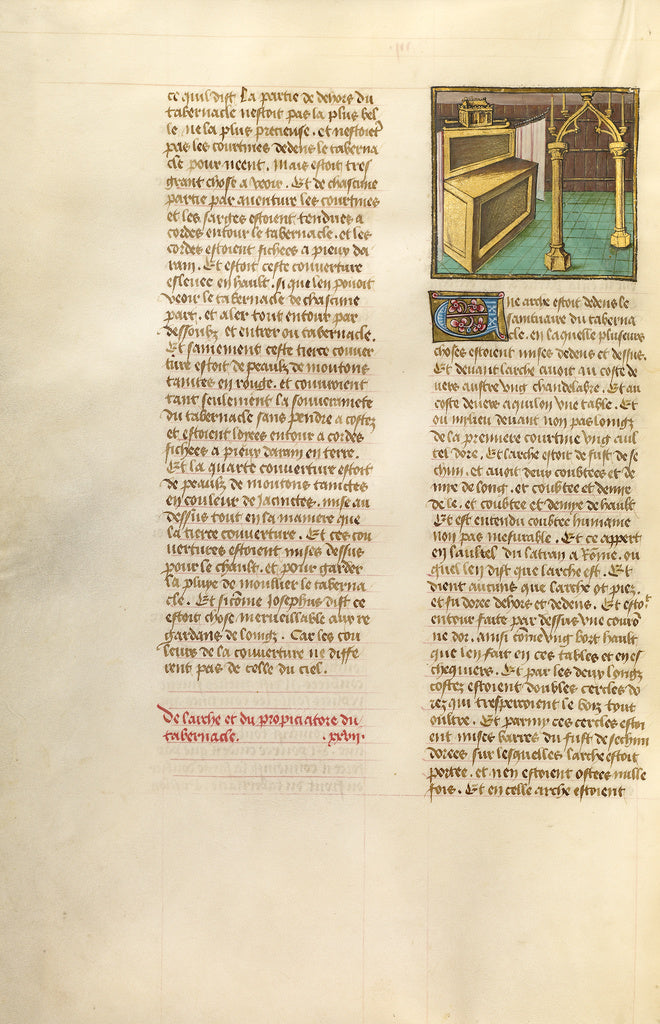 ce quil dist La partie de dehors du
tabernacle nestoit pas la plus bel
le ne la plus precieuse. et nestoiēt
pas les courtines dedens le taberna
cle pour neent. Mais estoit tres
grant chose a veoir. Et de chascune
partie par auenture les courtines
et les sarges estoient tendues a
cordes entour le tabernacle. et les
cordes estoient fichees a pieux da
rain. Et estoit ceste couuerture
esleuee en hault. si que len pouoit
veoir le tabernacle de chascune
part. et aler tout entour par
dessoubz et entrer ou tabernacle.
Et sainement ceste tierce couuer
ture estoit de peaulx de moutons
taintes en rouge. et couuroient
tant seulement la souuerainete
du tabernacle sans pendre a costez
et estoient loyees entour a cordes
fichees a pieux darain en terre.
Et la quarte couuerture estoit
de peaulx de moutons tainctes
en couleur de Jacinctes. mise au
dessus tout en la maniere que
la tierce couuerture. Et ces cou
uertures estoient mises dessus
pour le chault. et pour garder
la pluye de moullier le taberna
cle. Et sicōme Josephus dist ce
estoit chose merueillable aux re
gardans de loingz. Car les cou
leurs de la couuerture ne diffe
rent pas de celle du ciel.
De larche et du propiciatore du
tabernacle. .xxvii.
Une arche estoit dedens le
saintuaire du taberna
cle. en laquelle plusieurs
choses estoient mises dedens et dessus.
Et deuant larche auoit au coste de
uers austre vng chandelabre. Et au
coste deuers aquilon vne table. Et
ou milieu deuant non pas loingz
de la premiere courtine vng aul
tel dore. Et larche estoit de fust de se
chim. et auoit deux coubtees et de
mye de long. et coubtee et demye
de le. et coubtee et demye de hault
Et est entendu coubtee humaine
non pas mesurable. Et ce appert
en lautel du latran a Rōme. ou
quel len dist que larche est. Et
dient aucuns que larche ot piez.
et fu doree dehors et dedens. Et estoit
entour faite par dessus vne courō
ne dor. ainsi cōme vng bort hault
que len fait en ces tables et en es
chequiers. Et par les deux longz
costez estoient doubles cercles do
rez qui tresperçoient le boiz tout
oultre. Et parmy ces cercles estoi
ent mises barres du fust de sechim
dorees sur lesquelles larche estoit
portee. et nen estoient ostees nulle
fois. Et en celle arche estoient